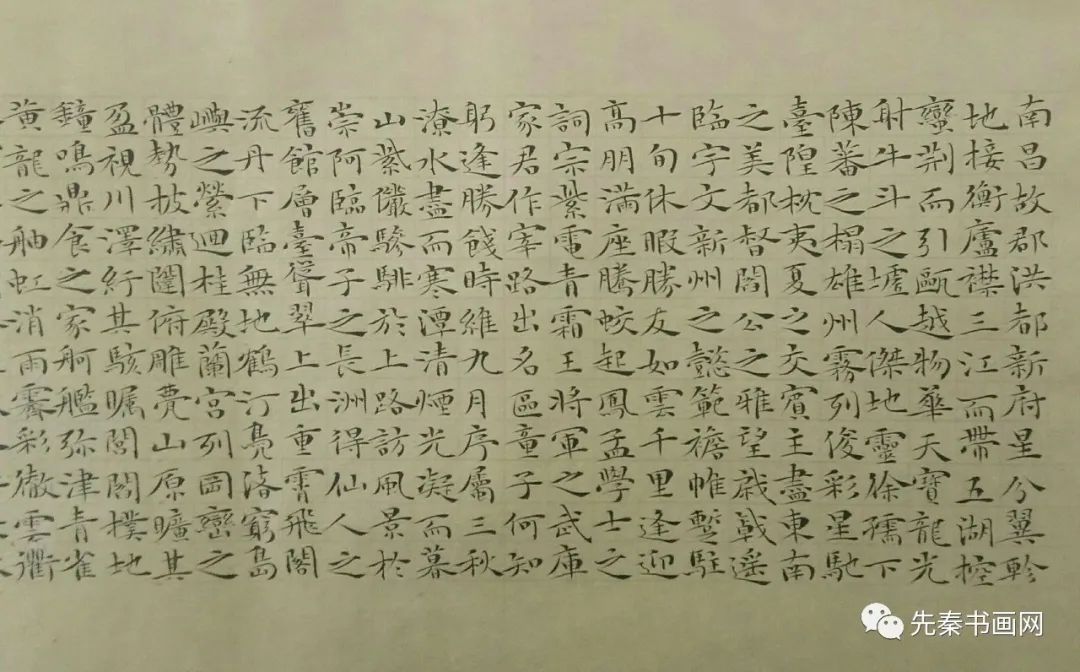 南昌故郡洪都新府星分翼軫
地接衡廬襟三江而帶五湖控
蠻荆而引甌越物華天寶龍光
射牛斗之墟人傑地靈徐孺下
陳蕃之榻雄州霧列俊彩星馳
臺隍枕夷夏之交賓主盡東南
之美都督閻公之雅望棨戟遥
臨宇文新州之懿範襜帷暫駐
十旬休暇勝友如雲千里逢迎
高朋滿座騰蛟起鳳孟學士之
詞宗紫電青霜王將軍之武庫
家君作宰路出名區童子何知
躬逢勝餞時維九月序屬三秋
潦水盡而寒潭清煙光凝而暮
山紫儼驂騑於上路訪風景於
崇阿臨帝子之長洲得仙人之
舊館層臺聳翠上出重霄飛閣
流丹下臨無地鶴汀鳧渚窮島
嶼之縈迴桂殿蘭宮列岡巒之
體勢披繡闥俯雕甍山原曠其
盈視川澤紆其駭矚閭閻撲地
鐘鳴鼎食之家舸艦弥津青雀
黃龍之舳虹消雨霽彩徹雲衢
先秦书画网